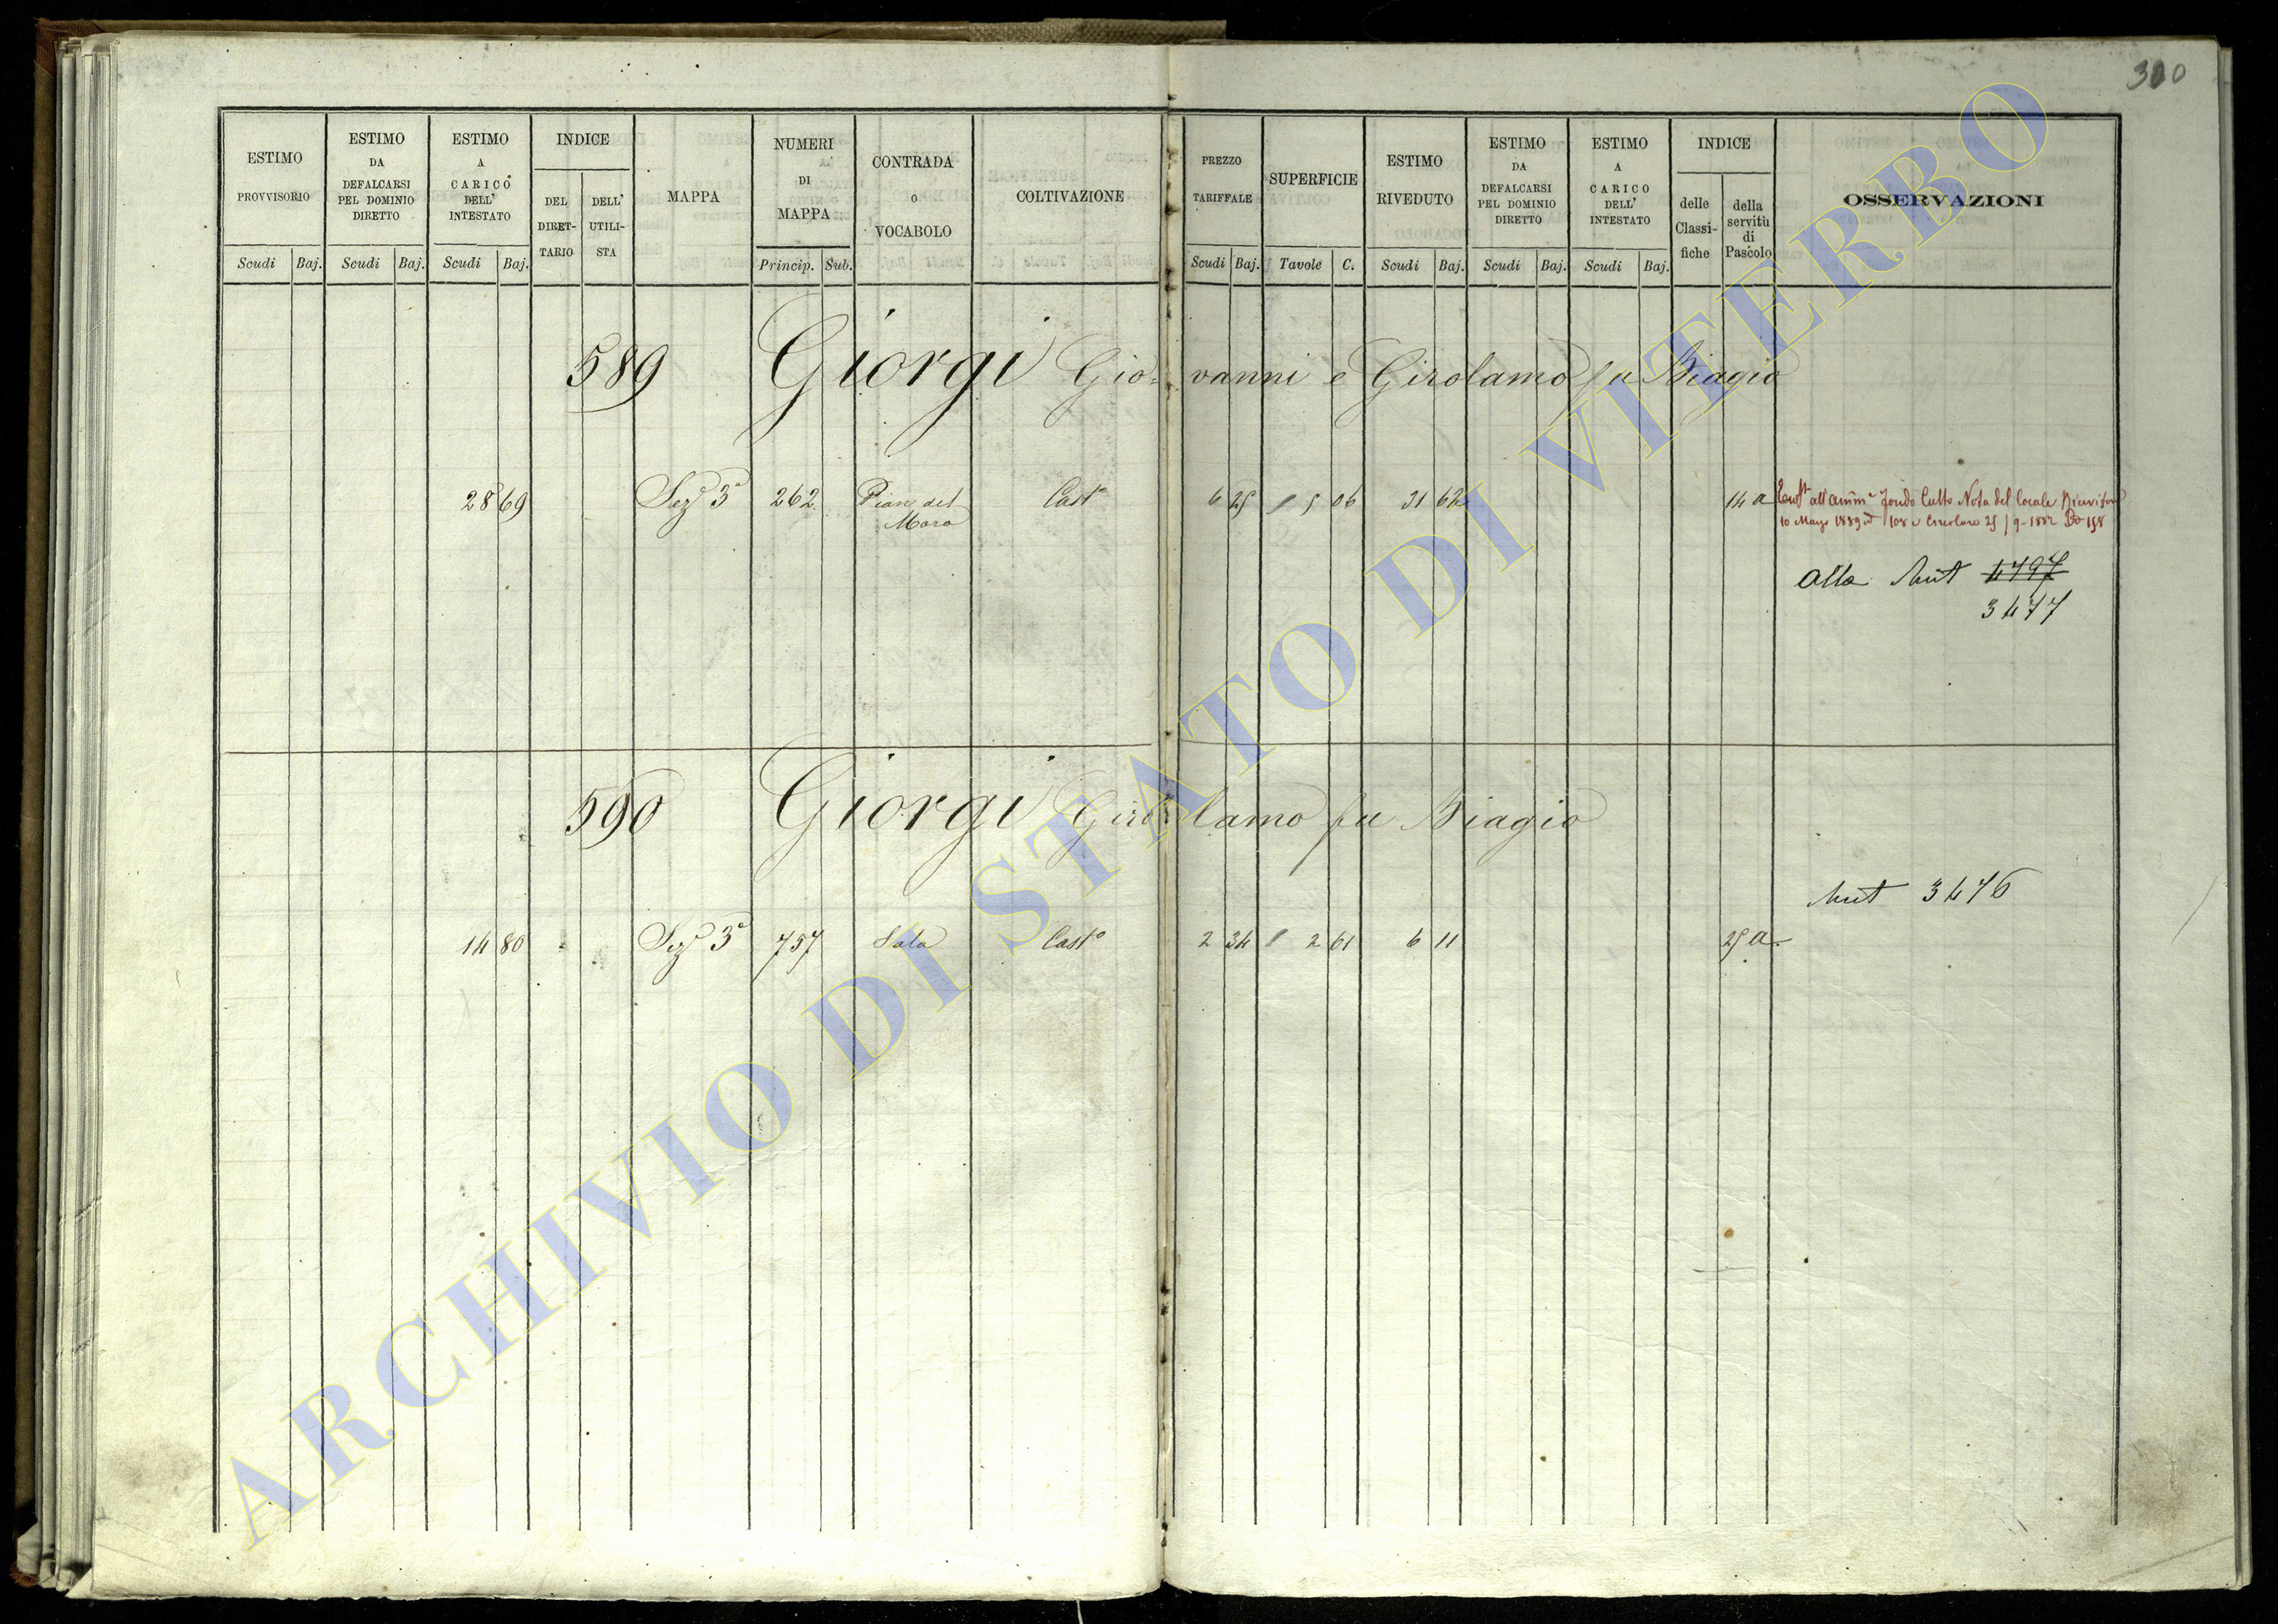 300
ESTIMO PROVVISORIO
ESTIMO DA DEFALCARSI PEL DOMINIO DIRETTO
ESTIMO A CARICO DELL' INTESTATO
INDICE
DEL DIRET-TARIO
DELL' UTILI-STA
MAPPA
NUMERI DI MAPPA
CONTRADA O VOCABOLO
COLTIVAZIONE
PREZZO TARIFFALE
SUPERFICIE
ESTIMO RIVEDUTO
ESTIMO DA DEFALCARSI PEL DOMINIO DIRETTO
ESTIMO A CARICO DELL' INTESTATO
INDICE
delle Classi-fiche
della servitù di Pascolo
OSSERVAZIONI
Scudi Baj. Scudi Baj. Scudi Baj. Princip. Sub. Scudi Baj. Tavole C. Scudi Baj. Scudi Baj. Scudi Baj.
589 Giorgi Gio= vanni e Girolamo fu Biagio
28 69 Sez.e 3a 262 Pian del Moro Casto 6 25 5 06 31 62 14 a
all'Ammne Fondo Culto Nota del locale
10 Mago 1889 108 e Circolare 25/9-1882 158
alla Mut 4797
3477
590 Giorgi Giro lamo fu Biagio
Mut 3476
14 80 = Sez.e 3a 757 Sala Casto 2 34 2 61 6 11 25 a
ARCHIVIO DI STATO DI VITERBO